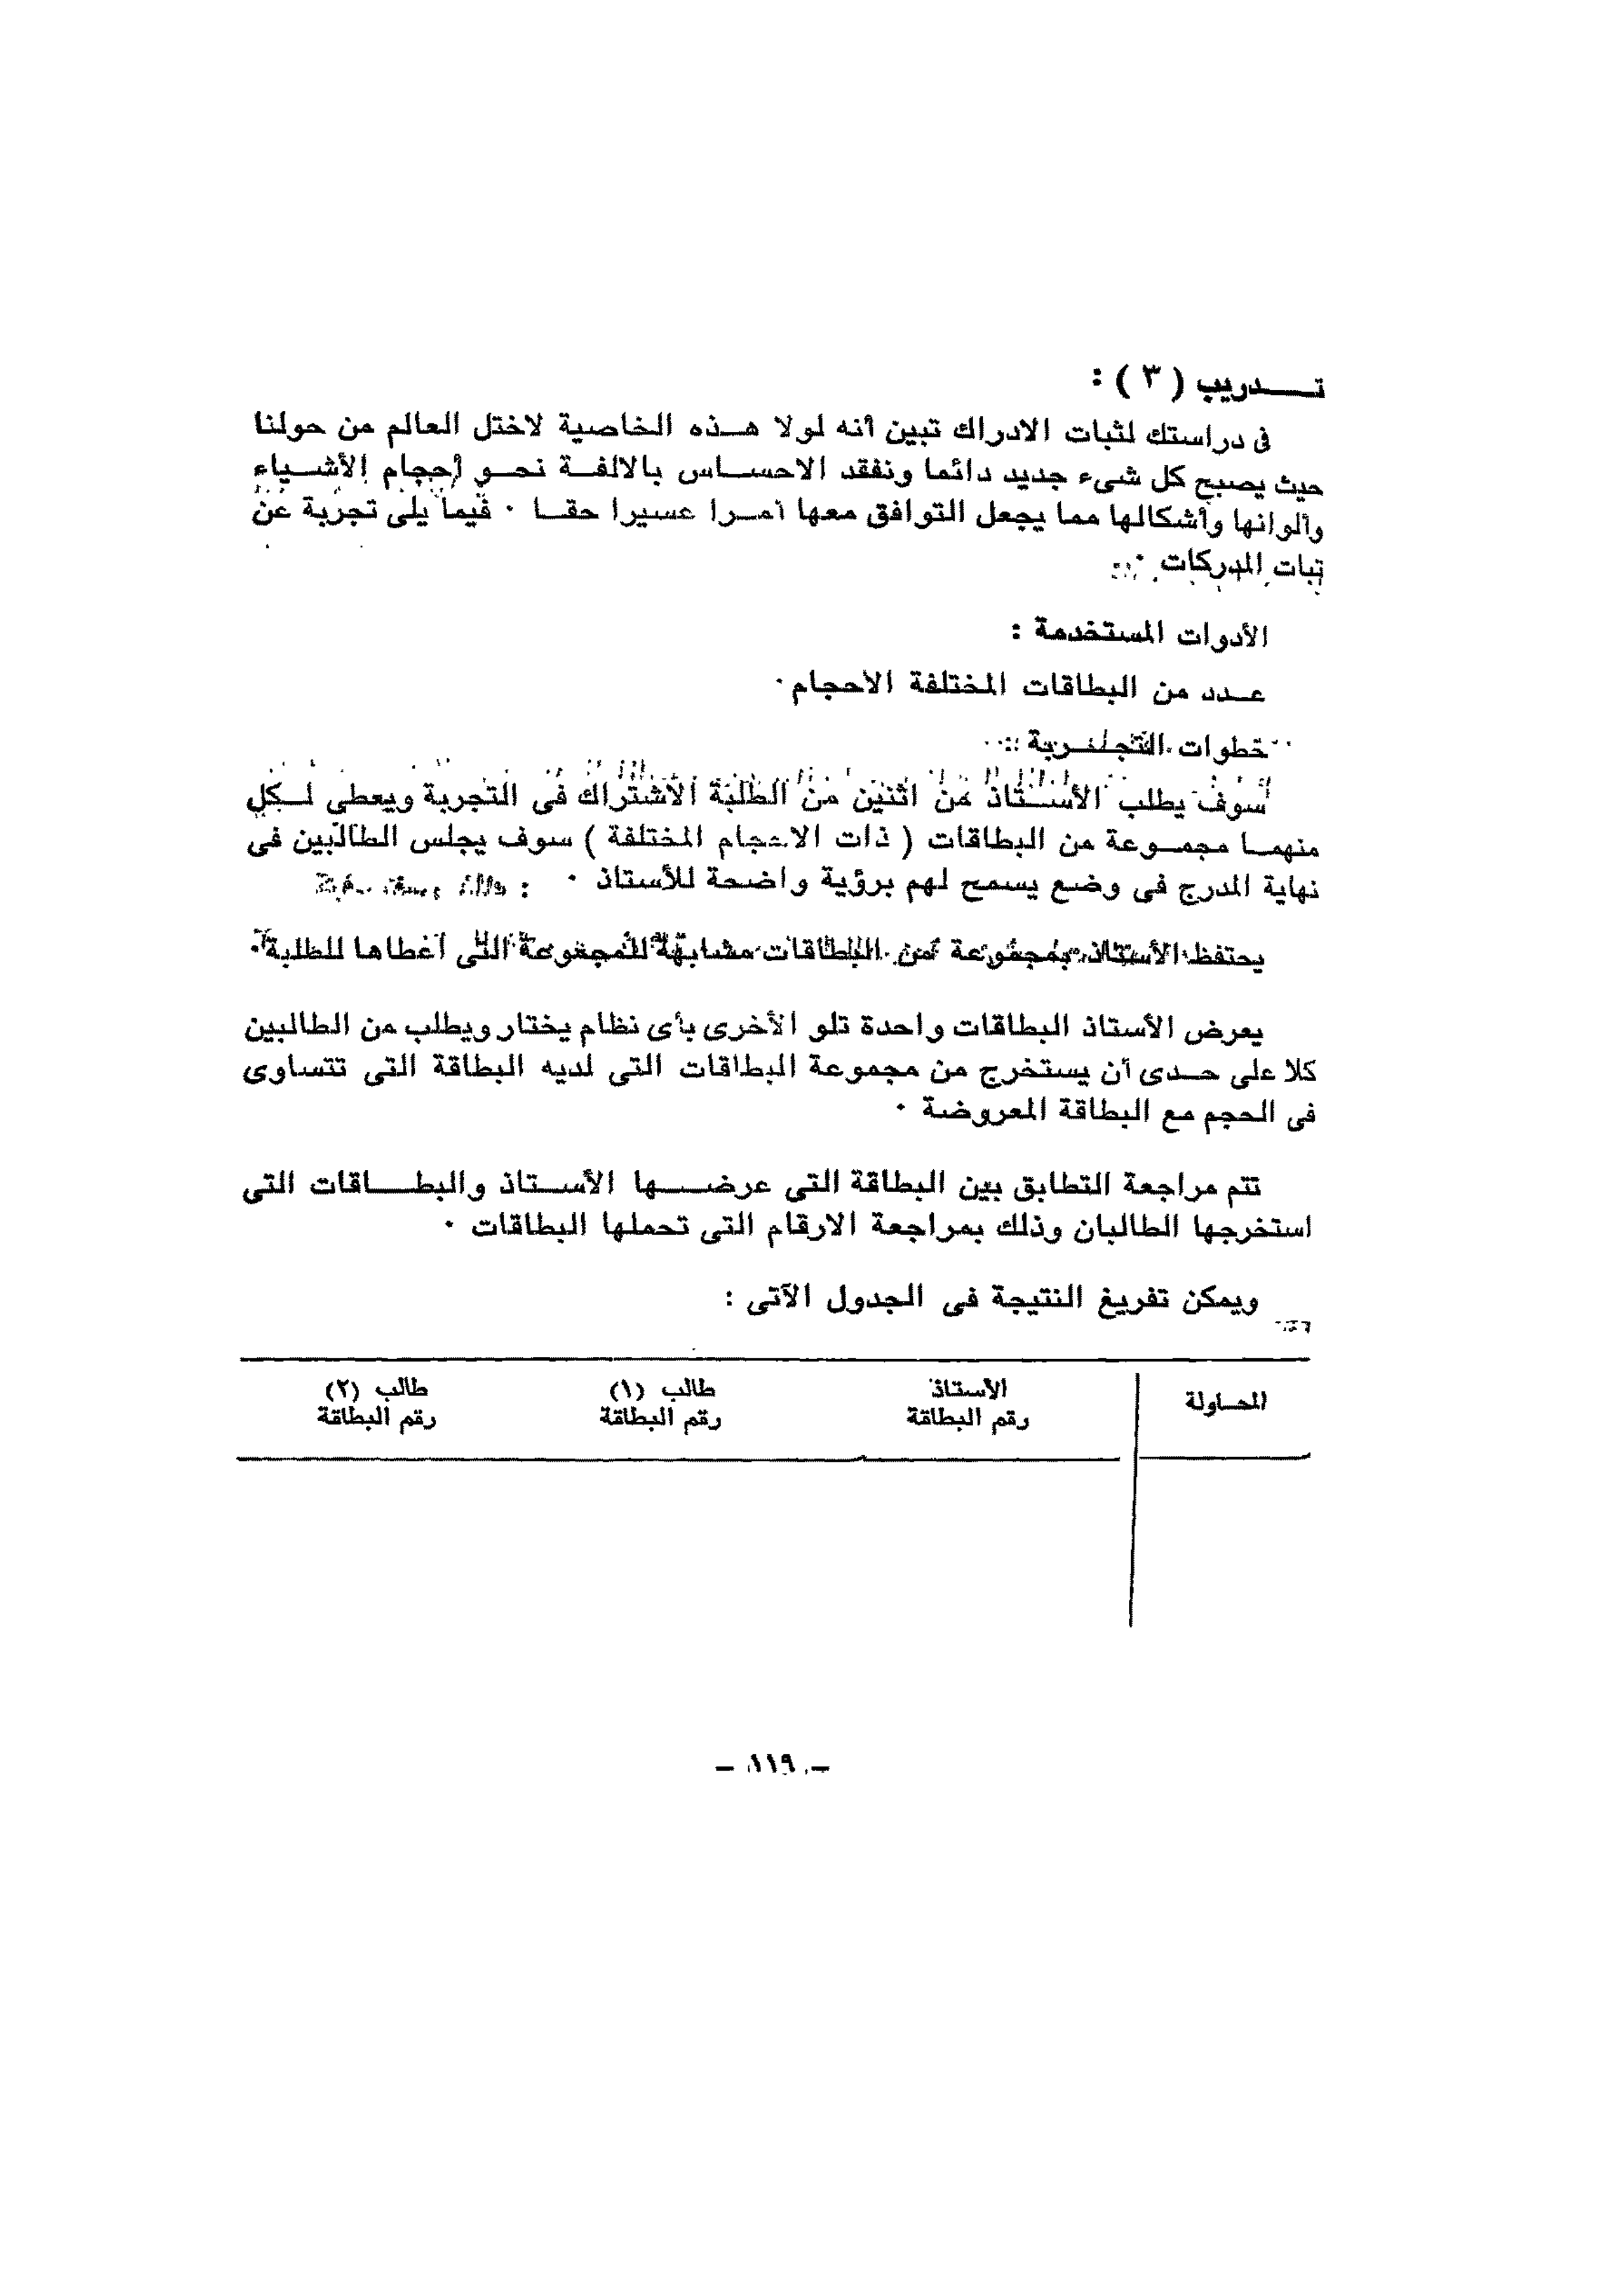 تـــدريب ( ٣ ) :
فى دراستك لثبات الادراك تبين أنه لولا هـذه الخاصية لاختل العالم من حولنا
حيث يصبح كل شىء جديد دائما ونفقد الاحساس بالالفة نحو أحجام الأشياء
وألوانها وأشكالها مما يجعل التوافق معها أمرا عسيرا حقا ٠ فيما يلى تجربة عن
ثبات المدركات ٠
الأدوات المستخدمة :
عدد من البطاقات المختلفة الاحجام ٠
خطوات التجربة :
سوف يطلب الأستاذ من اثنين من الطلبة الاشتراك فى التجربة ويعطى لكل
منهما مجموعة من البطاقات ( ذات الاحجام المختلفة ) سوف يجلس الطالبين فى
نهاية المدرج فى وضع يسمح لهم برؤية واضحة للأستاذ ٠
يحتفظ الأستاذ بمجموعة من البطاقات مشابهة للمجموعة التى أعطاها للطلبة ٠
يعرض الأستاذ البطاقات واحدة تلو الأخرى بأى نظام يختار ويطلب من الطالبين
كلا على حدى أن يستخرج من مجموعة البطاقات التى لديه البطاقة التى تتساوى
فى الحجم مع البطاقة المعروضة ٠
تتم مراجعة التطابق بين البطاقة التى عرضها الأستاذ والبطاقات التى
استخرجها الطالبان وذلك بمراجعة الارقام التى تحملها البطاقات ٠
ويمكن تفريغ النتيجة فى الجدول الآتى :
المحاولة الأستاذ طالب (١) طالب (٢)
رقم البطاقة رقم البطاقة رقم البطاقة
– ١١٩ –